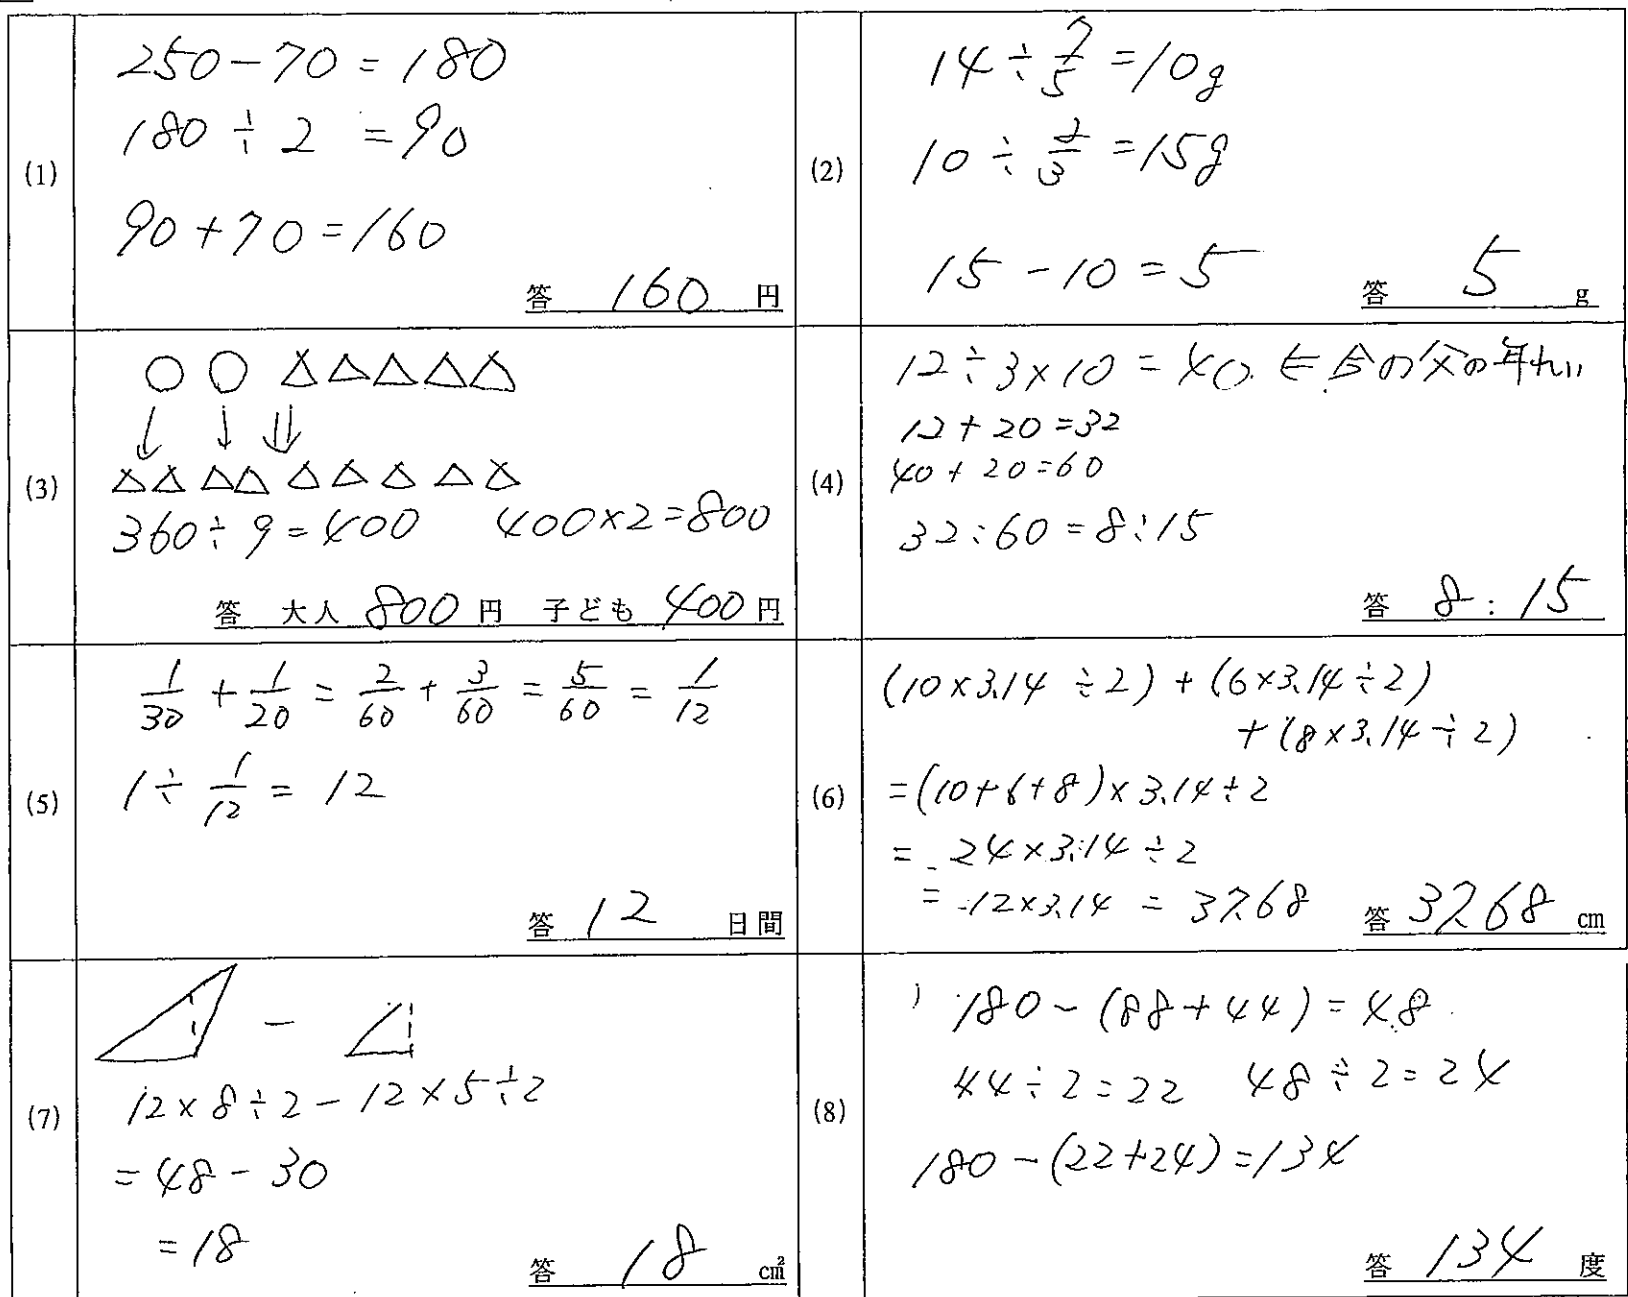 (1)
250-70=180
180÷2=90
90+70=160
答 160 円
(2)
14÷7/5=10g
10÷2/3=15g
15-10=5
答 5 g
(3)
○ ○ △△△△△
↓ ↓ ⇓
△△ △△ △△△ △△
360÷9=400 400×2=800
答 大人 800 円 子ども 400 円
(4)
12÷3×10=40 ⇐今の父の年れい
12+20=32
40+20=60
32:60=8:15
答 8:15
(5)
1/30+1/20=2/60+3/60=5/60=1/12
1÷1/12=12
答 12 日間
(6)
(10×3.14÷2)+(6×3.14÷2)
+(8×3.14÷2)
=(10+6+8)×3.14÷2
=24×3.14÷2
=12×3.14=37.68
答 37.68 cm
(7)
-
12×8÷2-12×5÷2
=48-30
=18
答 18 cm²
(8)
180-(88+44)=48
44÷2=22 48÷2=24
180-(22+24)=134
答 134 度